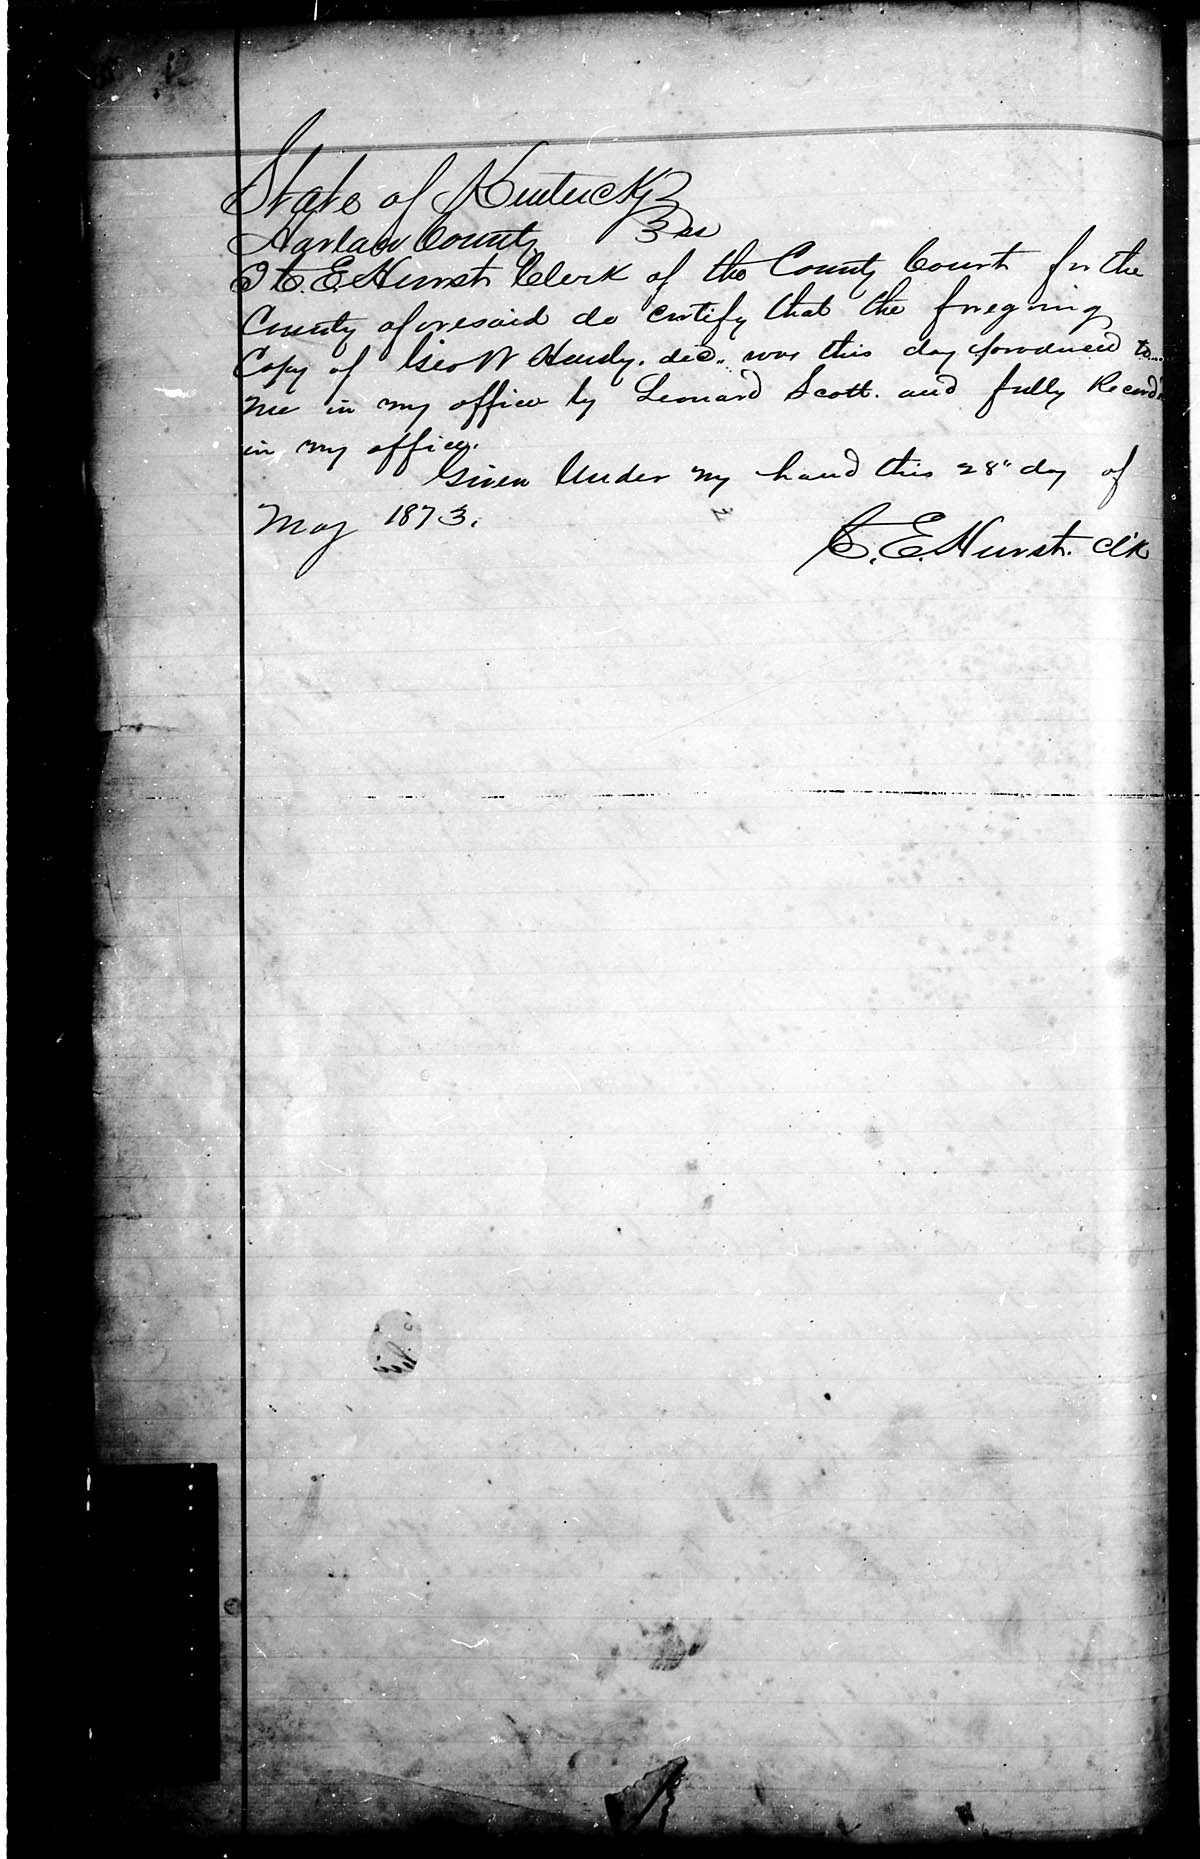 State of Kentucky
Harlan County } ss
I C. E. Hurst Clerk of the County Court for the
County aforesaid do certify that the foregoing
Copy of Geo W Hardy. dec.. was this day produced to
me in my office by Leonard Scott. and fully Record
in my office.
Given Under my hand this 28" day of
May 1873.
C. E. Hurst. Clk